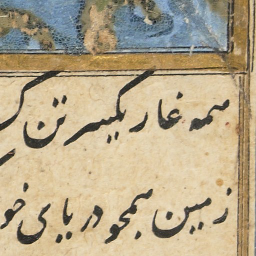 همه غار یکسر تن
زمین همچو دریای خو